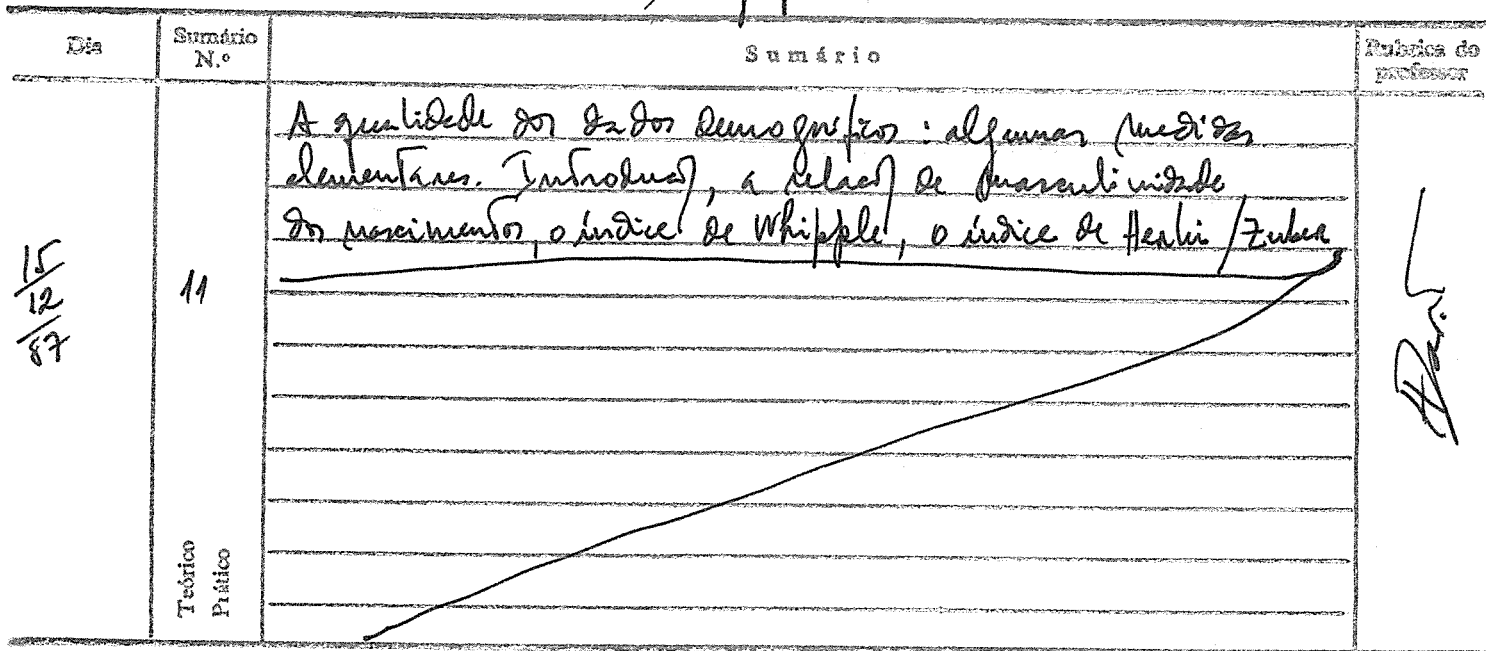 Dia
Sumário N.º
Sumário
Rubrica do professor
15/12/87
11
Teórico
Prático
A qualidade dos dados demográficos: algumas medidas
elementares. Introdução, a relação de masculinidade
dos nascimentos, o índice de Whipple, o índice de / Zuber